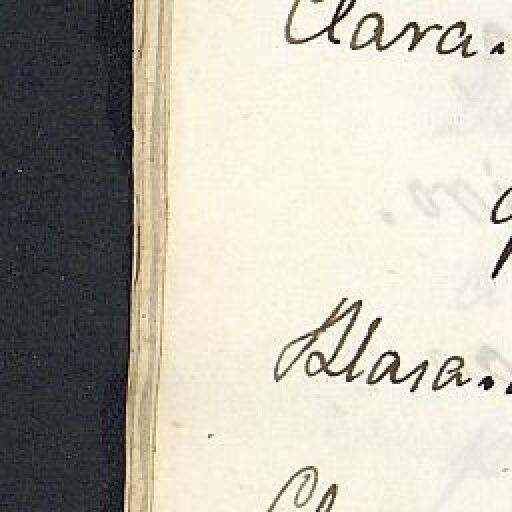 Clara.
Blasa.
Cl